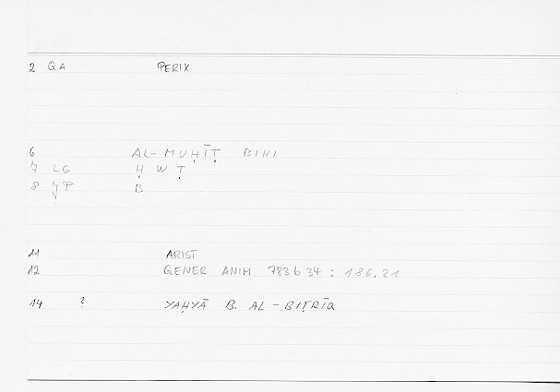 2 QA PERIX
6 AL-MUḤĪṬ BIHI
7 LG Ḥ W Ṭ
8 JP B
11 ARIST
12 GENER ANIM 783 b 34 : 186.21
14 ? YAḤYĀ B. AL-BIṬRĪQ